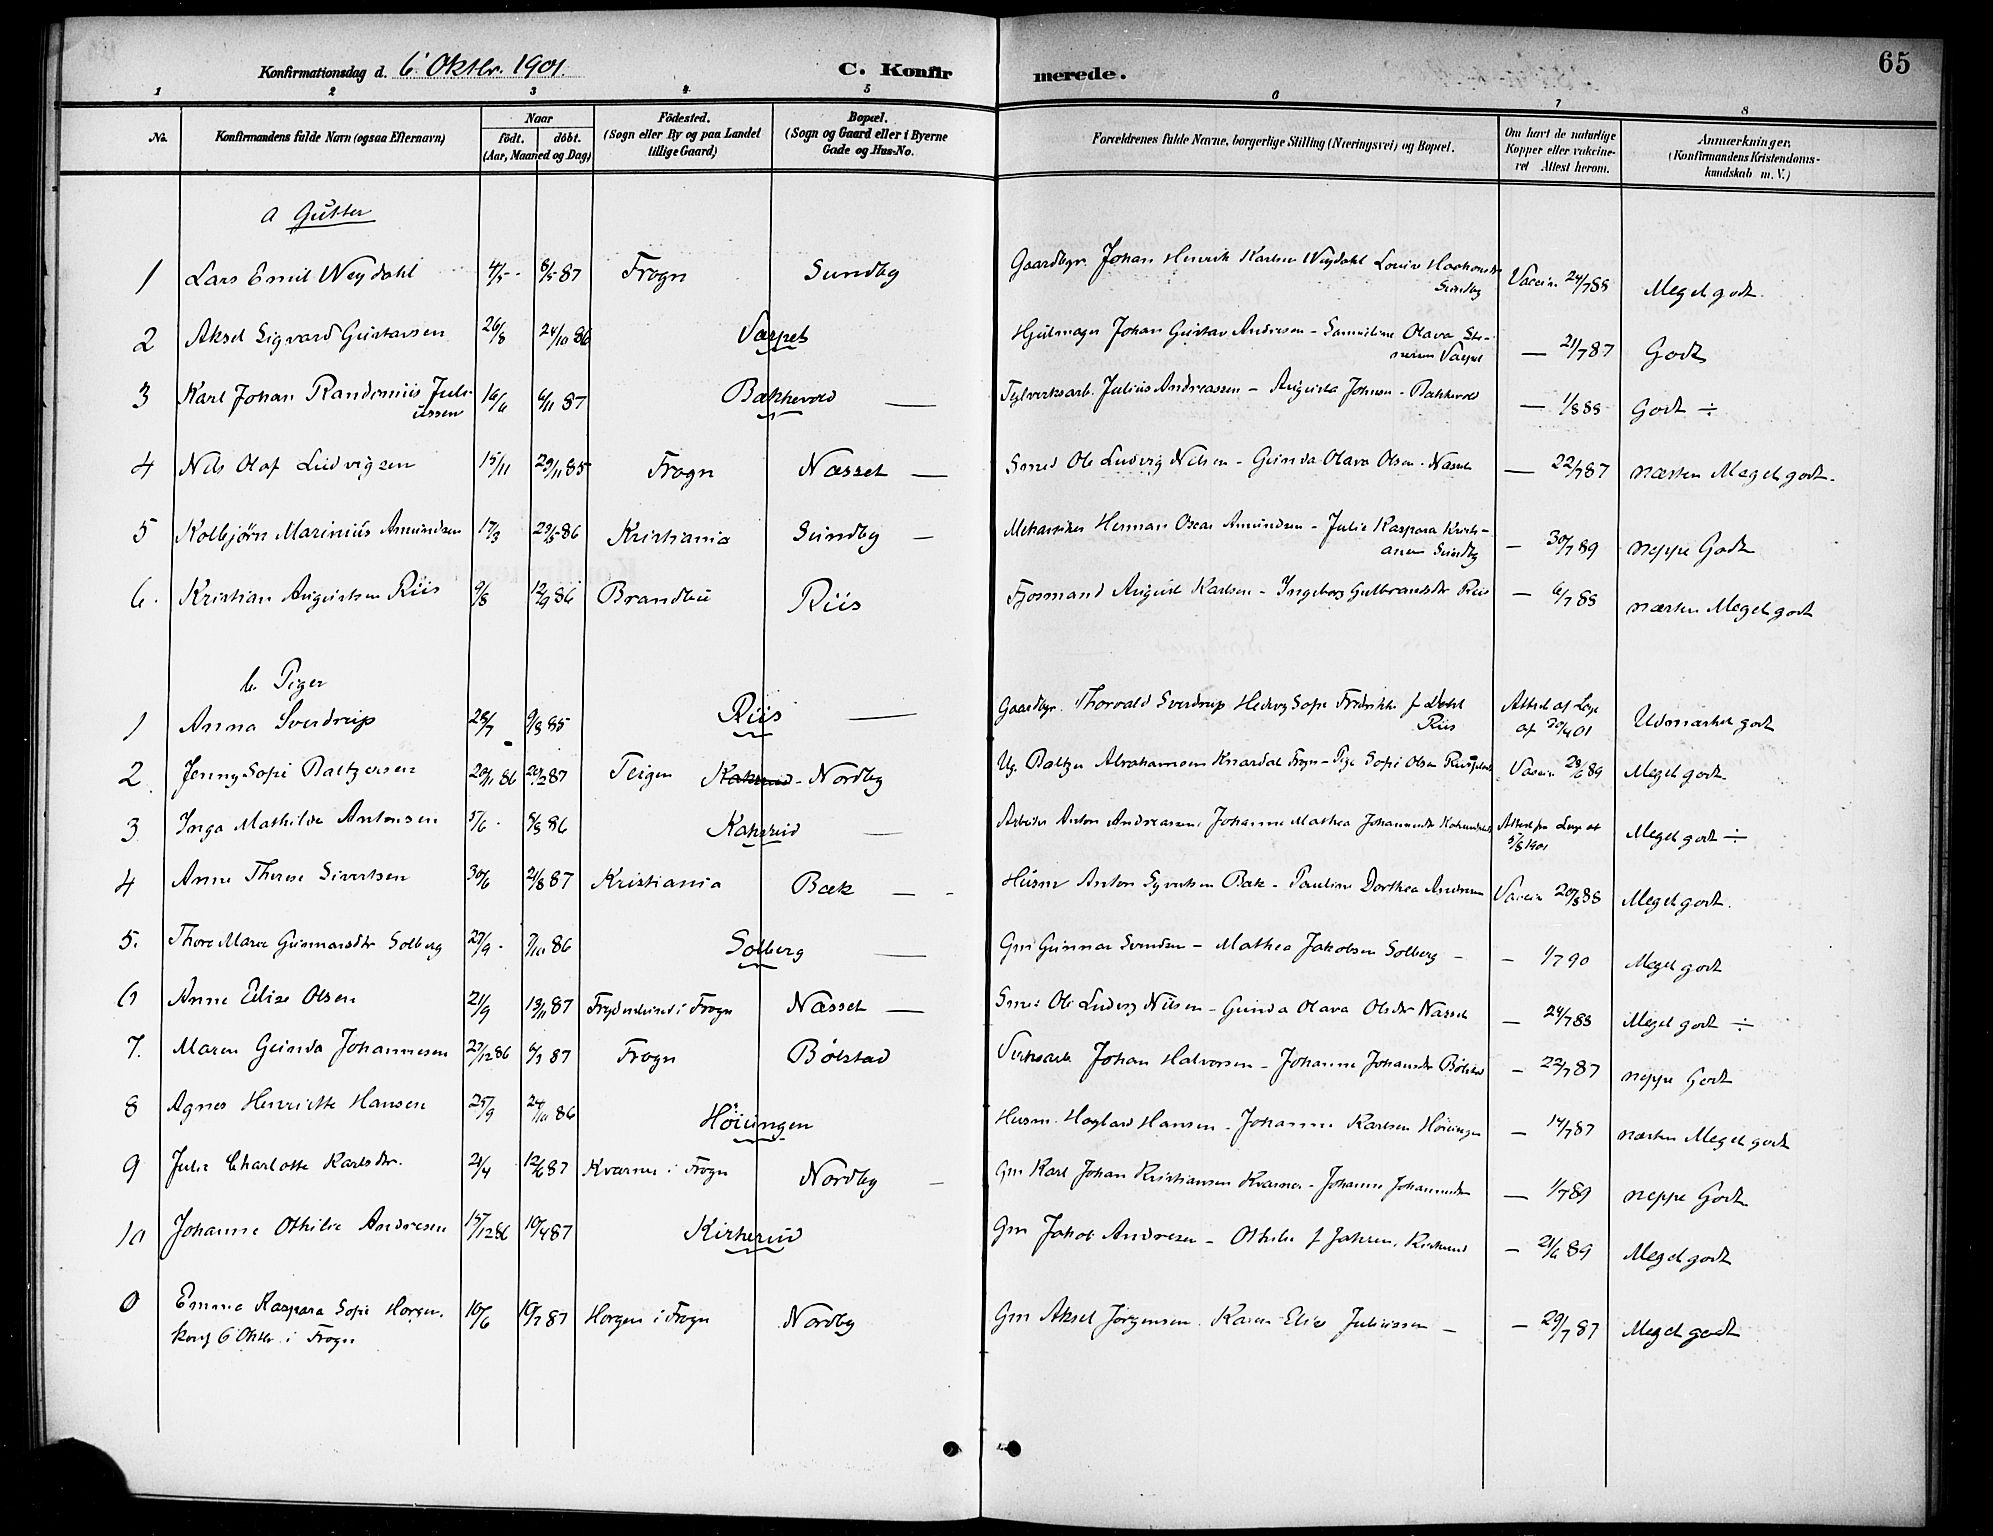 65
Konfirmationsdag d. 6 Oktbr. 1901. C. Konfirmerede.
1 2 3 4 5 6 7 8
No. Konfirmandens fulde Navn (ogsaa Efternavn) Naar født. døbt. (Aar, Maaned og Dag) Fødested. (Sogn eller By og paa Landet tillige Gaard) Bopæl. (Sogn og Gaard eller i Byerne Gade og Hus-No. Forældrenes fulde Navne, borgerlige Stilling (Næringsvei) og Bopæl. Om havt de naturlige Kopper eller vakcineret Attest herom. Anmærkninger. (Konfirmandens Kristendomskundskab m. V.)
a Gutter
1 Lars Emil Weydahl 4/5 - 8/5 87 Frogn Sundby Gaardbgr. Johan Henrik Karlsen Weydahl Lovise Sundby Vaccin 24/7 88 Meget godt.
2 Aksel Sigvard Gustavsen 26/8 24/10 86 Varpet Hjulmager Johan Gustav Andresen - Olava Varpet — 21/7 87 Godt
3 Karl Johan Randinius Juliussen 16/6 6/11 87 Bakkevold — Teglverksarb. Julius Andreassen - Augusta Johnsen - Bakkevold — 1/8 88 Godt ÷
4 Nils Olaf Ludvigsen 15/11 29/11 85 Frogn Næsset — Smed Ole Ludvig Nilsen - Gunda Olava Olsen - Næsset — 22/7 87 næsten Meget godt.
5 Kolbjørn Marinius Amundsen 17/3 29/5 86 Kristiania Sundby — Mekaniker Herman Oscar Amundsen - Julie Kaspara Kristiansen Sundby — 30/7 89 neppe Godt
6. Kristian Augustsen Riis 9/8 12/9 86 Brandbu Riis Fjosmand August Karlsen - Ingeborg Gulbrandsdtr Riis — 6/7 88 næsten Meget godt
b. Piger
1 Anna Sverdrup 28/7 9/8 85 Riis — Gaardbgr. Thorvald Sverdrup Hedvig Sofie Fredrikke f Riis Attest af Læge af 20/4 01 Udmærket godt
2. Jenny Sofie Baltzersen 20/11 86 20/2 87 Teigen Nordby Ug. Baltzer Abrahamsen Knardal Frogn - Pige Sofie Olsen Vaccin 28/6 89 Meget godt
3 Inga Mathilde Antonsen 5/6 - 8/8 86 Kaksrud — Arbeider Anton Andreassen, Johanne Mathea Attest fra Læge af 5/8 1901 Meget godt ÷
4 Anne Therese Sivertsen 30/6 21/8 87 Kristiania Bæk — Husm Anton Syvertsen Bæk - Pauline Dorthea Andresen Vaccin 20/8 88 Meget godt.
5. Thora Marie Gunnarsdtr Solberg 27/9 - 7/10 86 Solberg — Gm Gunnar Svendsen - Mathea Jakobsen Solberg — - 1/7 90 Meget godt
6 Anne Elise Olsen 21/9 13/11 87 i Frogn Næsset — Smed Ole Ludvig Nilsen - Gunda Olava Olsdtr Næsset — 24/7 88 Meget godt ÷
7. Maren Gunda Johannesen 27/12 86 6/3 87 Frogn Bølstad Verksarb. Johan Halvorsen - Johanne Johansdtr Bølstad — 22/7 87 neppe Godt
8 Agnes Henriette Hansen 25/9 24/10 86 Høiungen Husm. Hansen - Johanne Karlsen Høiungen — 14/7 87 næsten Meget godt
9 Julie Charlotte Karlsdtr. 21/4 12/6 87 Kværner i Frogn Nordby — Gm Karl Johan Kristiansen Kværner - Johanne Johannesdtr — 1/7 89 neppe Godt
10 Johanne Othilie Andresen 15/12 86 10/4 87 Kirkerud Gm Jakob Andresen - Othilie f Jahren, Kirkerud — 21/6 89 Meget godt
0 Emma Kaspara Sofie Horgen. konf 6 Oktbr. i Frogn 10/6 10/7 87 Horgen i Frogn Nordby Gm Aksel Jørgensen. Karen Elise Juliussen — — 29/7 87 Meget godt